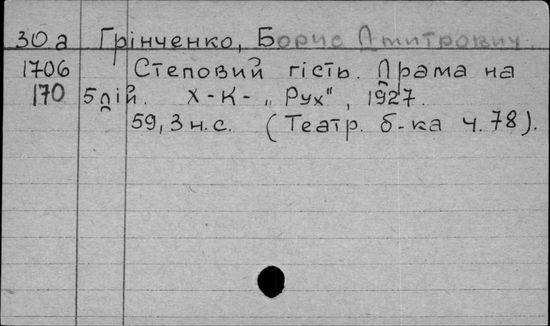 30а Грінченко, Борис Дмитрович.
1706 Степовий гість. Драма на
170 5 дій. Х-К- „Рух", 1927.
59, 3 н.с. (Театр. б-ка ч. 78).